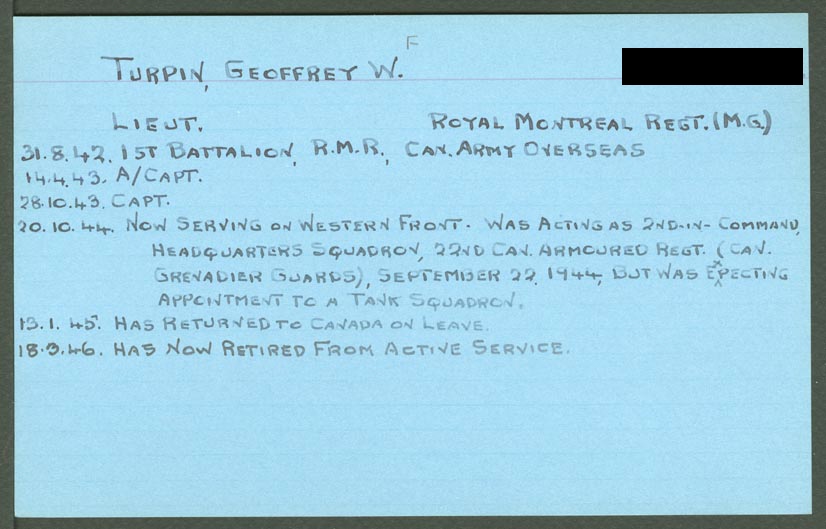 F
TURPIN, GEOFFREY W.
LIEUT. ROYAL MONTREAL REGT. (M.G.)
31.8.42. 1ST BATTALION, R.M.R., CAN. ARMY OVERSEAS
14.4.43. A/CAPT.
28.10.43. CAPT.
20.10.44. NOW SERVING ON WESTERN FRONT. WAS ACTING AS 2ND-IN-COMMAND,
HEADQUARTERS SQUADRON, 22ND CAN. ARMOURED REGT. (CAN.
GRENADIER GUARDS), SEPTEMBER 22, 1944, BUT WAS EXPECTING
APPOINTMENT TO A TANK SQUADRON.
13.1.45. HAS RETURNED TO CANADA ON LEAVE.
18.3.46. HAS NOW RETIRED FROM ACTIVE SERVICE.